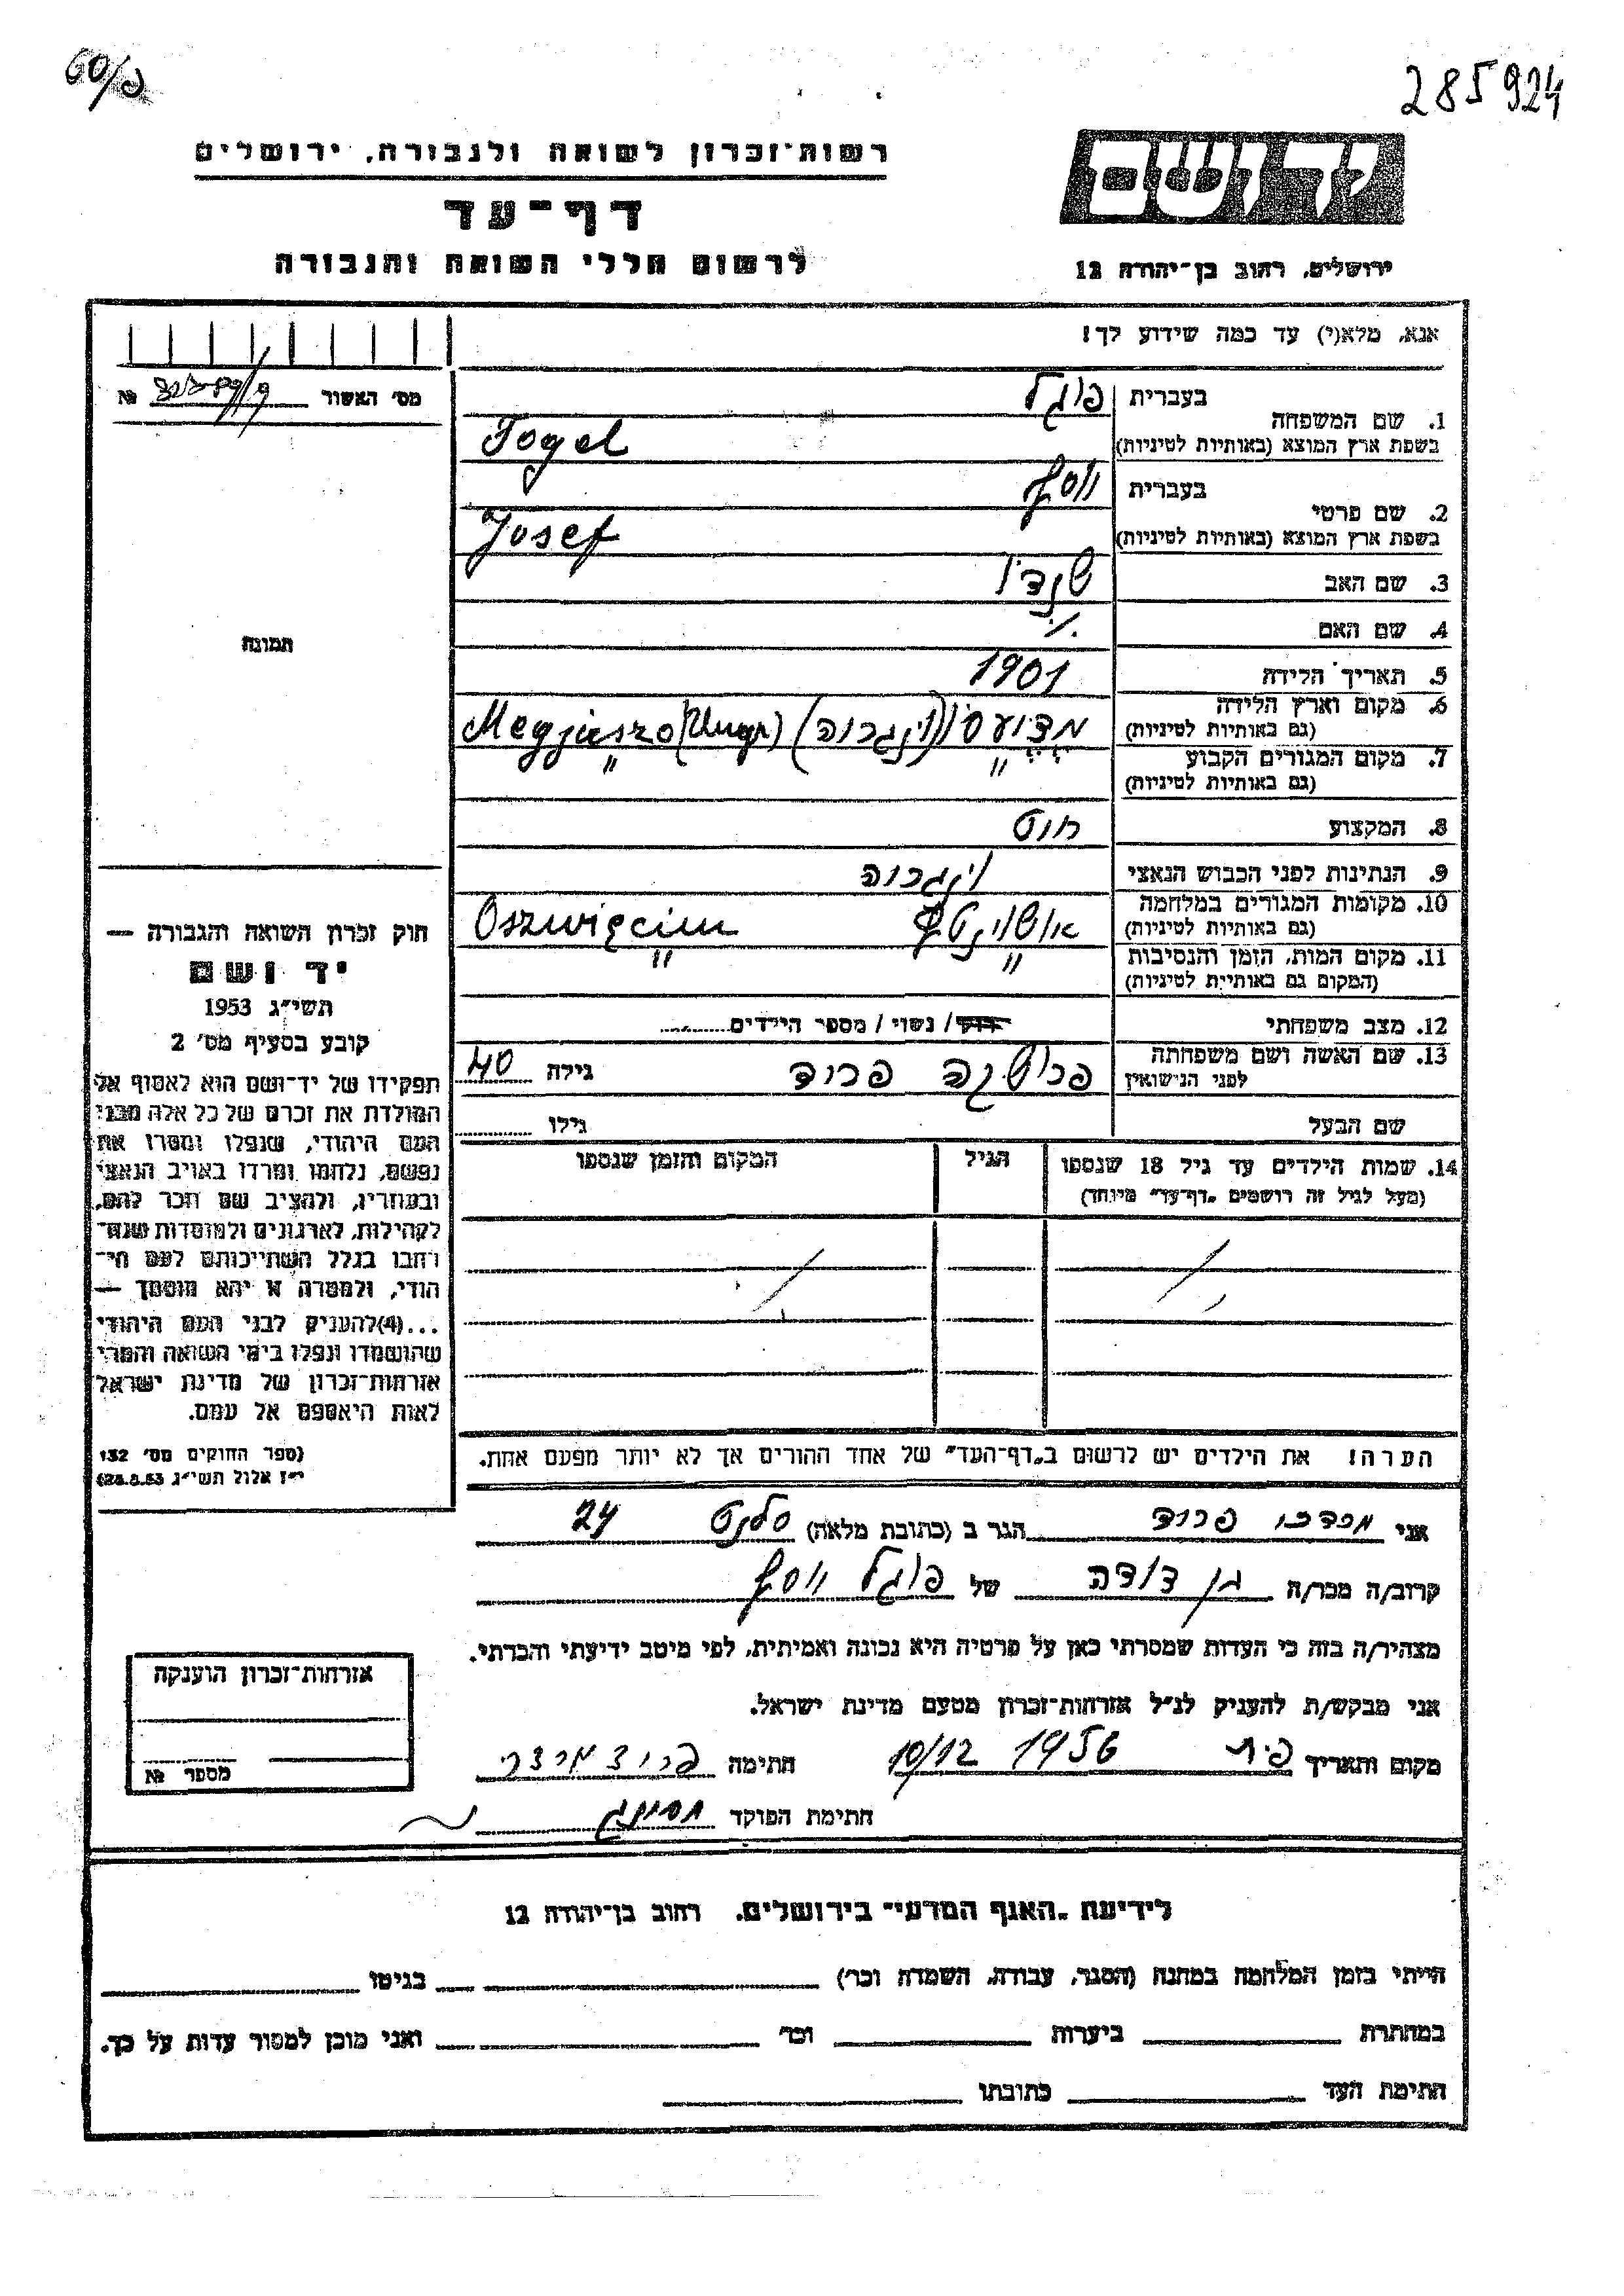 285924
60/פ
יד ושם
רשות־זכרון לשואה ולגבורה, ירושלים
דף־עד
לרשום חללי השואה והגבורה
ירושלים, רחוב בן־יהודה 12
אנא, מלא(י) עד כמה שידוע לך!
מס' האשור №
1. שם המשפחה בעברית פוגל
בשפת ארץ המוצא (באותיות לטיניות) Fogel
2. שם פרטי בעברית יוסף
בשפת ארץ המוצא (באותיות לטיניות) Josef
3. שם האב
4. שם האם ./.
5. תאריך הלידה 1901
6. מקום וארץ הלידה (אונגריה) Megjaszo (Ungr)
(גם באותיות לטיניות)
7. מקום המגורים הקבוע " "
(גם באותיות לטיניות)
8. המקצוע
9. הנתינות לפני הכבוש הנאצי אונגריה
10. מקומות המגורים במלחמה Oszwięcim
(גם באותיות לטיניות)
11. מקום המות, הזמן והנסיבות " "
(המקום גם באותיית לטיניות)
12. מצב משפחתי רווק / נשוי / מספר הילדים
13. שם האשה ושם משפחתה פרוד גילה 40
לפני הנישואין
שם הבעל גילו
14. שמות הילדים עד גיל 18 שנספו הגיל המקום והזמן שנספו
(מעל לגיל זה רושמים "דף־עד" מיוחד)
הערה! את הילדים יש לרשום ב"דף־העד" של אחד ההורים אך לא יותר מפעם אחת.
תמונה
חוק זכרון השואה והגבורה —
יד ושם
תשי"ג 1953
קובע בסעיף מס' 2
תפקידו של יד־ושם הוא לאסוף אל
המולדת את זכרם של כל אלה מבני
העם היהודי, שנפלו ומסרו את
נפשם, נלחמו ומרדו באויב הנאצי
ובעוזריו, ולהציב שם וזכר להם,
לקהילות, לארגונים ולמוסדות שנח־
רבו בגלל השתייכותם לעם הי־
הודי, ולמטרה זו יהא מוסמך —
...(4)להעניק לבני העם היהודי
שהושמדו ונפלו בימי השואה והמרי
אזרחות־זכרון של מדינת ישראל
לאות היאספם אל עמם.
(ספר החוקים מס' 132
י"ז אלול תשי"ג 28.8.53)
אני מרדכי פרוד הגר ב (כתובת מלאה) סלנט 24
קרוב/ה מכר/ה בן דודה של פוגל יוסף
מצהיר/ה בזה כי העדות שמסרתי כאן על פרטיה היא נכונה ואמיתית, לפי מיטב ידיעתי והכרתי.
אני מבקש/ת להעניק לנ"ל אזרחות־זכרון מטעם מדינת ישראל.
מקום ותאריך פ״ת 10/12 1956 חתימה פרוד מרדכי
חתימת הפוקד
אזרחות־זכרון הוענקה
מספר №
לידיעת "האגף המדעי" בירושלים, רחוב בן־יהודה 12
הייתי בזמן המלחמה במחנה (הסגר, עבודה, השמדה וכו') בגיטו
במחתרת ביערות וכו' ואני מוכן למסור עדות על כך.
חתימת העד כתובתו